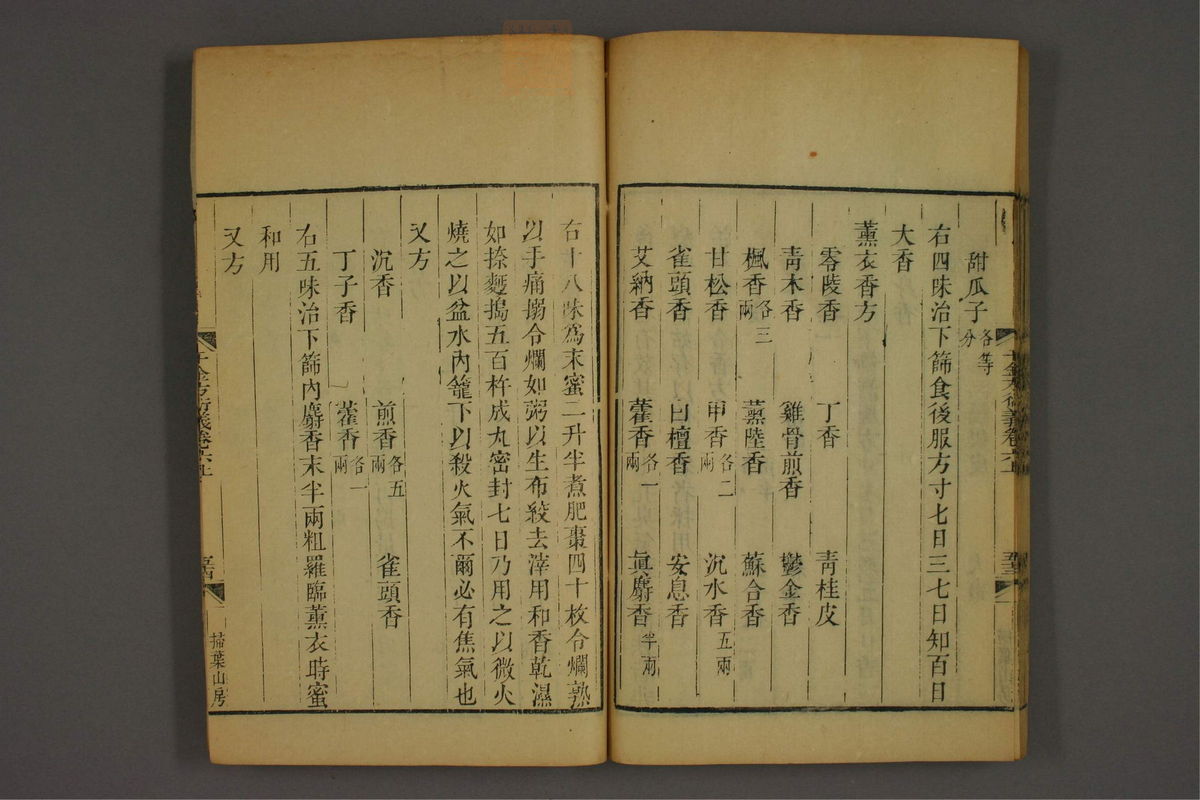 甜瓜子各等分
右四味治下篩食後服方寸匕日三七日知百日
大香
薰衣香方
零陵香 丁香 青桂皮
青木香 雞骨煎香 鬱金香
楓香各三兩 薰陸香 蘇合香
甘松香 甲香各二兩 沉水香五兩
雀頭香 白檀香 安息香
艾納香 藿香各一兩 眞麝香半兩
右十八味爲末蜜二升半煮肥棗四十枚令爛熟
以手痛搦令爛如粥以生布絞去滓用和香乾濕
如捺麨搗五百杵成丸密封七日乃用之以微火
燒之以盆水內籠下以殺火氣不爾必有焦氣也
又方
沉香 煎香各五兩 雀頭香
丁子香 藿香各一兩
右五味治下篩內麝香末半兩粗羅臨薰衣時蜜
和用
又方
千金方衍義卷六上
掃葉山房